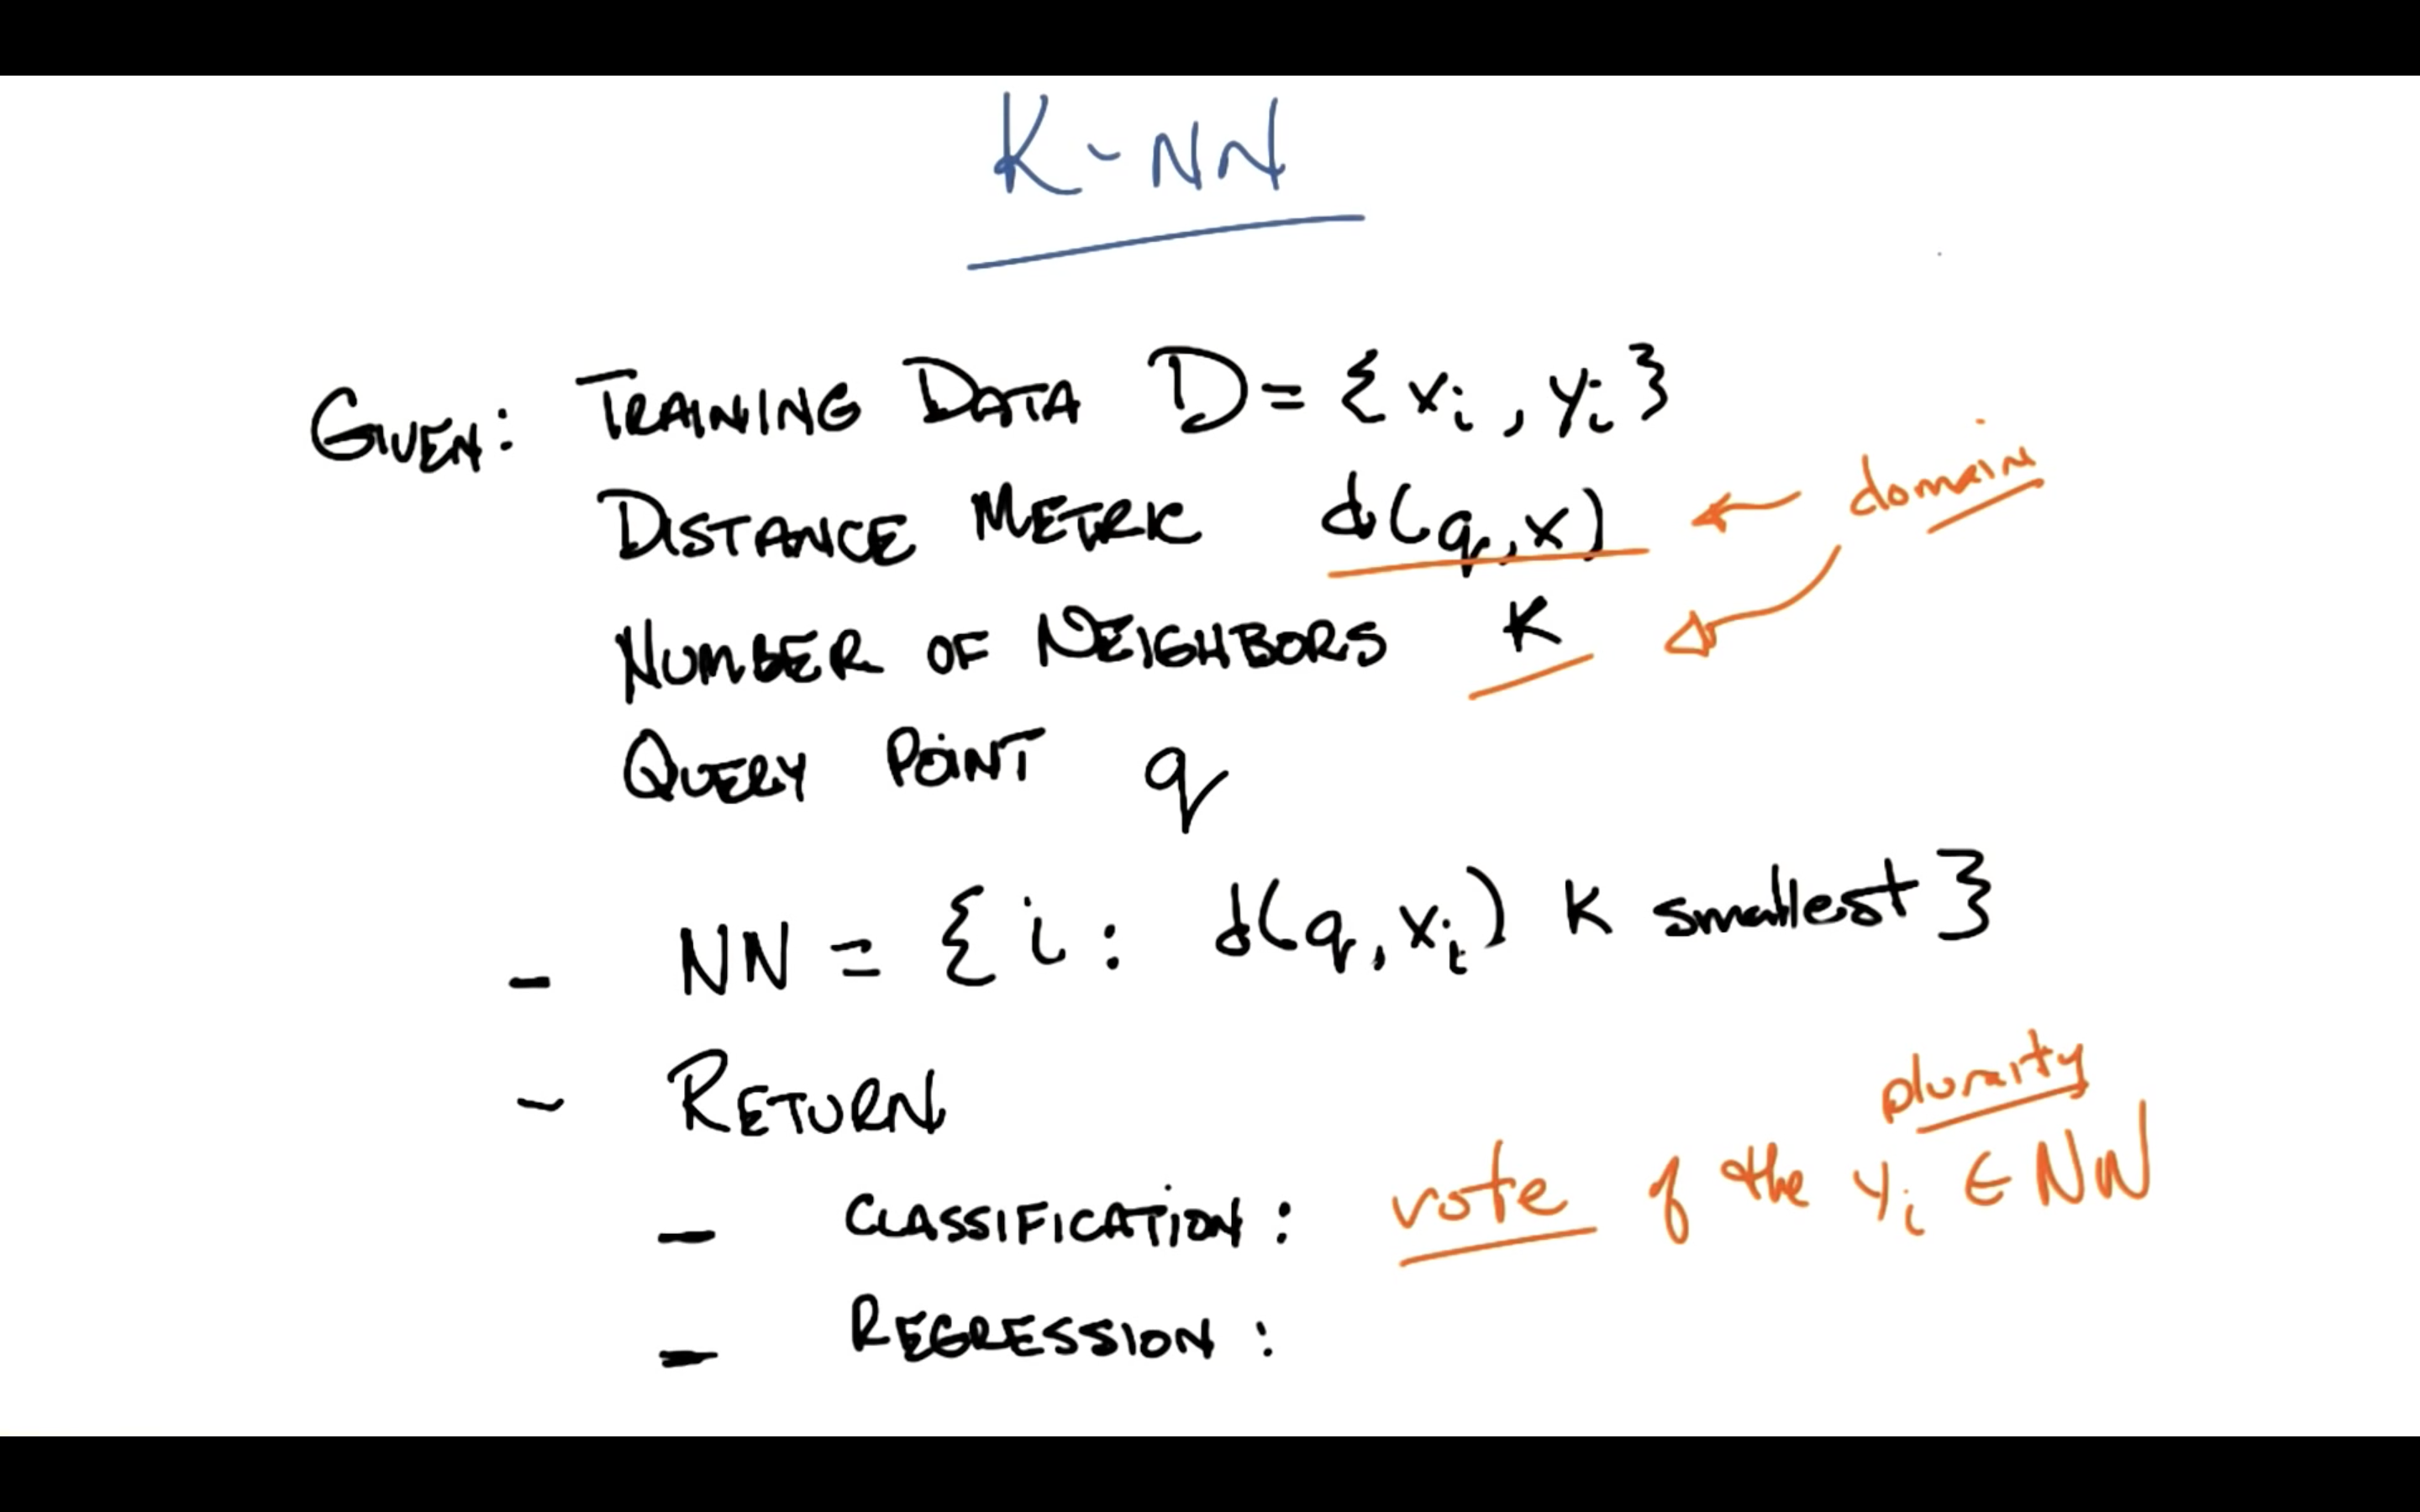 K-NN
GIVEN: TRAINING DATA D = { xi , yi }
DISTANCE METRIC d(q,x) ← domain
NUMBER OF NEIGHBORS K
QUERY POINT q
- NN = { i : d(q, xi) K smallest }
- RETURN
plurarity
- CLASSIFICATION : vote of the yi ∈ NN
- REGRESSION :